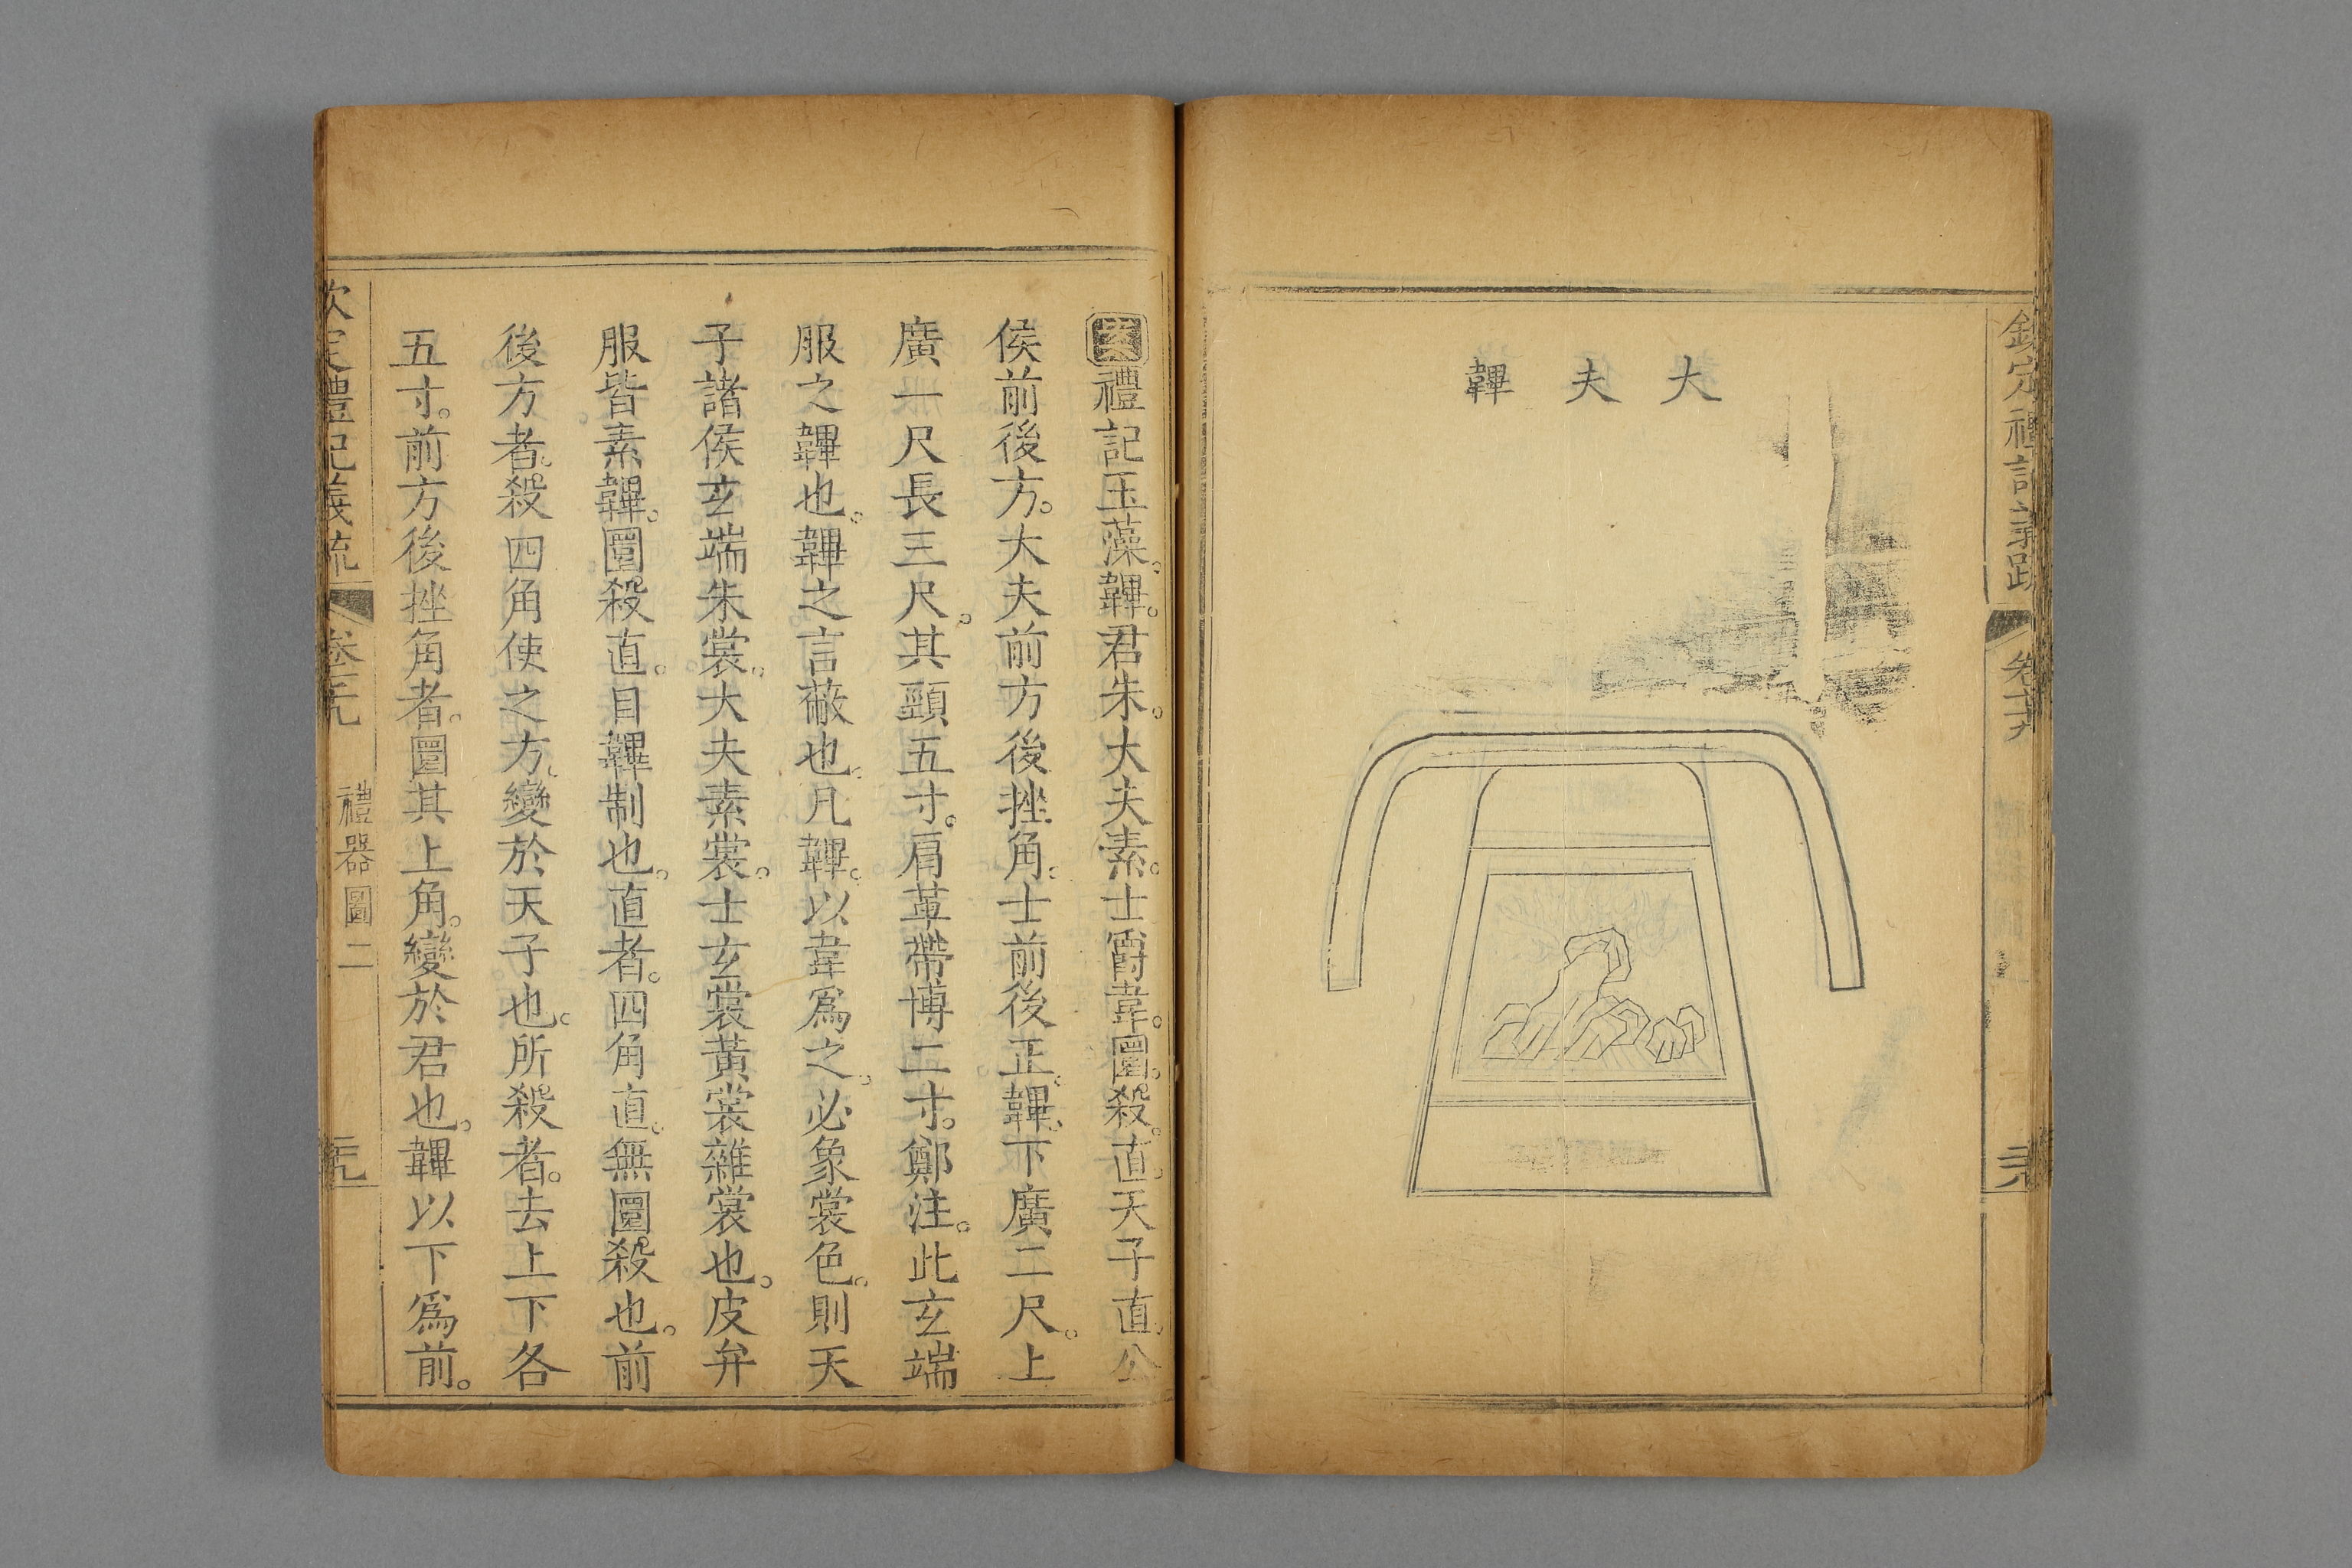 欽定禮記義疏
大夫韠
案禮記玉藻。韠。君朱。大夫素。士爵韋。圜。殺。直。天子直。公
侯前後方。大夫前方後挫角。士前後正。韠。下廣二尺。上
廣一尺長三尺。其頸五寸。肩革帶博二寸。鄭注。此玄端
服之韠也。韠之言蔽也。凡韠。以韋爲之。必象裳色。則天
子諸侯玄端朱裳。大夫素裳。士玄裳黃裳雜裳也。皮弁
服皆素韠。圜殺直。目韠制也。直者。四角直。無圜殺也。前
後方者。殺四角使之方。變於天子也。所殺者。去上下各
五寸。前方後挫角者。圜其上角。變於君也。韠以下爲前。
欽定禮記義疏
禮器圖二